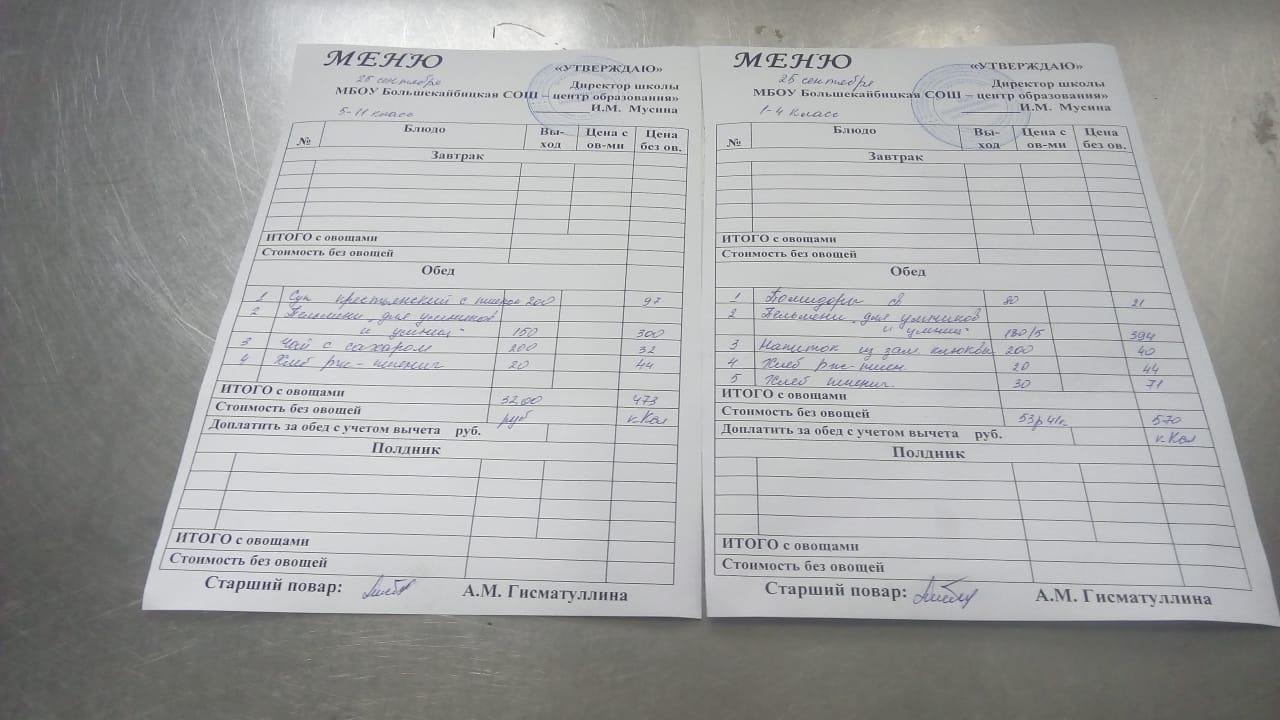 МЕНЮ
«УТВЕРЖДАЮ»
25 сентября
Директор школы
МБОУ Большекайбицкая СОШ – центр образования»
И.М. Мусина
5-11 класс
№ Блюдо Вы-ход Цена с ов-ми Цена без ов.
Завтрак
ИТОГО с овощами
Стоимость без овощей
Обед
1 Суп крестьянский с пшено 200 97
2 Пельмени „для умников
и умниц" 150 300
3 Чай с сахаром 200 32
4 Хлеб рж-пшенич 20 44
ИТОГО с овощами 3200 473
Стоимость без овощей руб к.Кал
Доплатить за обед с учетом вычета руб.
Полдник
ИТОГО с овощами
Стоимость без овощей
Старший повар: А.М. Гисматуллина
МЕНЮ
«УТВЕРЖДАЮ»
25 сентября
Директор школы
МБОУ Большекайбицкая СОШ – центр образования»
И.М. Мусина
1-4 класс
№ Блюдо Вы-ход Цена с ов-ми Цена без ов.
Завтрак
ИТОГО с овощами
Стоимость без овощей
Обед
1 Помидоры св 80 21
2 Пельмени „для умников
и умниц" 180/5 394
3 Напиток из зам клюквы 200 40
4 Хлеб рж-пшен 20 44
5 Хлеб пшенич. 30 71
ИТОГО с овощами
Стоимость без овощей 53р41к 570
Доплатить за обед с учетом вычета руб. к.Кал
Полдник
ИТОГО с овощами
Стоимость без овощей
Старший повар: А.М. Гисматуллина